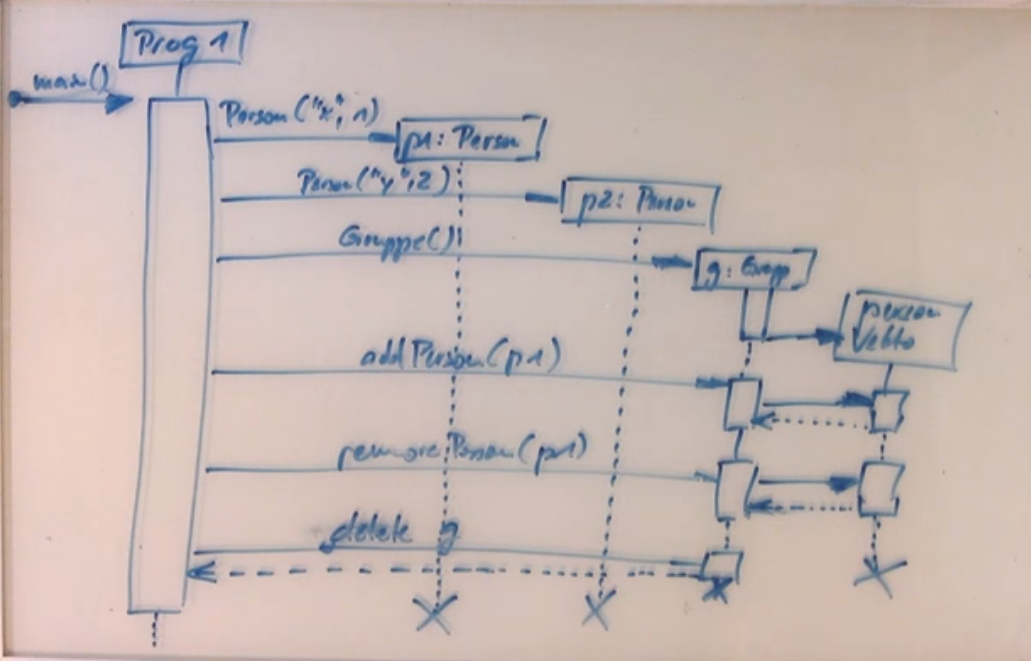 Prog 1
main()
Person("x", 1)
p1: Person
Person("y", 2)
p2: Person
Gruppe()
g: Grupp
person
Vekto
addPerson(p1)
removePerson(p1)
delete g